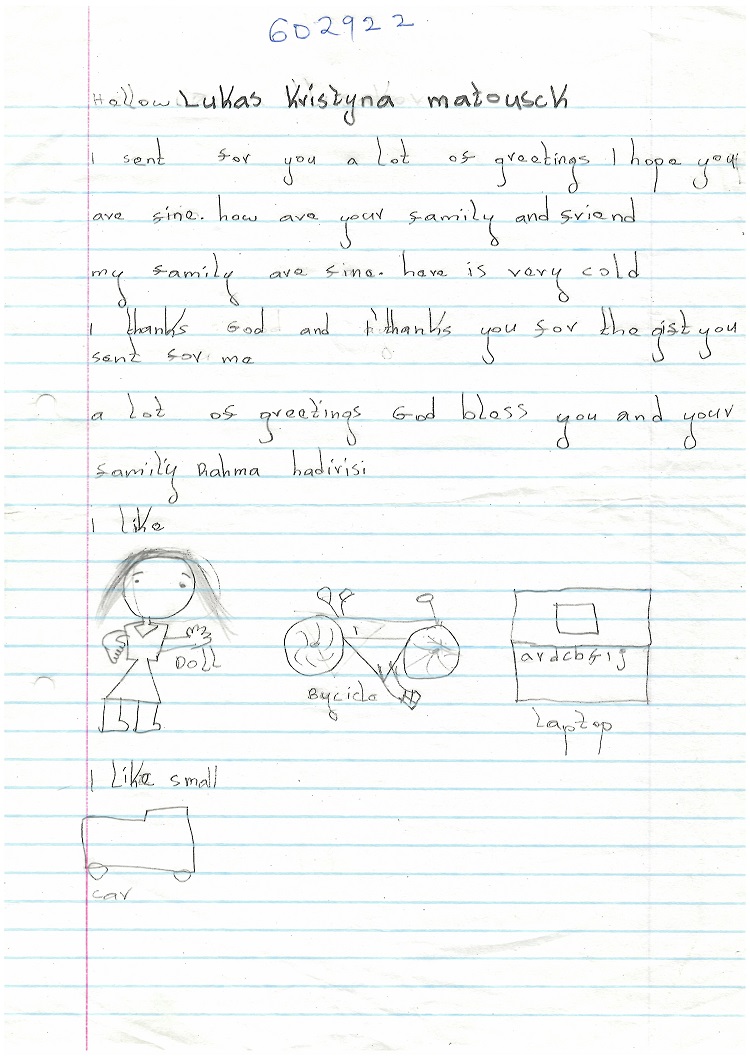 602922
Hallow Lukas Kristyna matousek
I sent for you a lot of greetings I hope you
are fine. how are your family and friend
my family are fine. here is very cold
I thanks God and I thanks you for the gift you
sent for me
a lot of greetings God bless you and your
family Rahma hadirisi
I like
Doll
Bycicle
ardcbfij
Laptop
I Like small
car